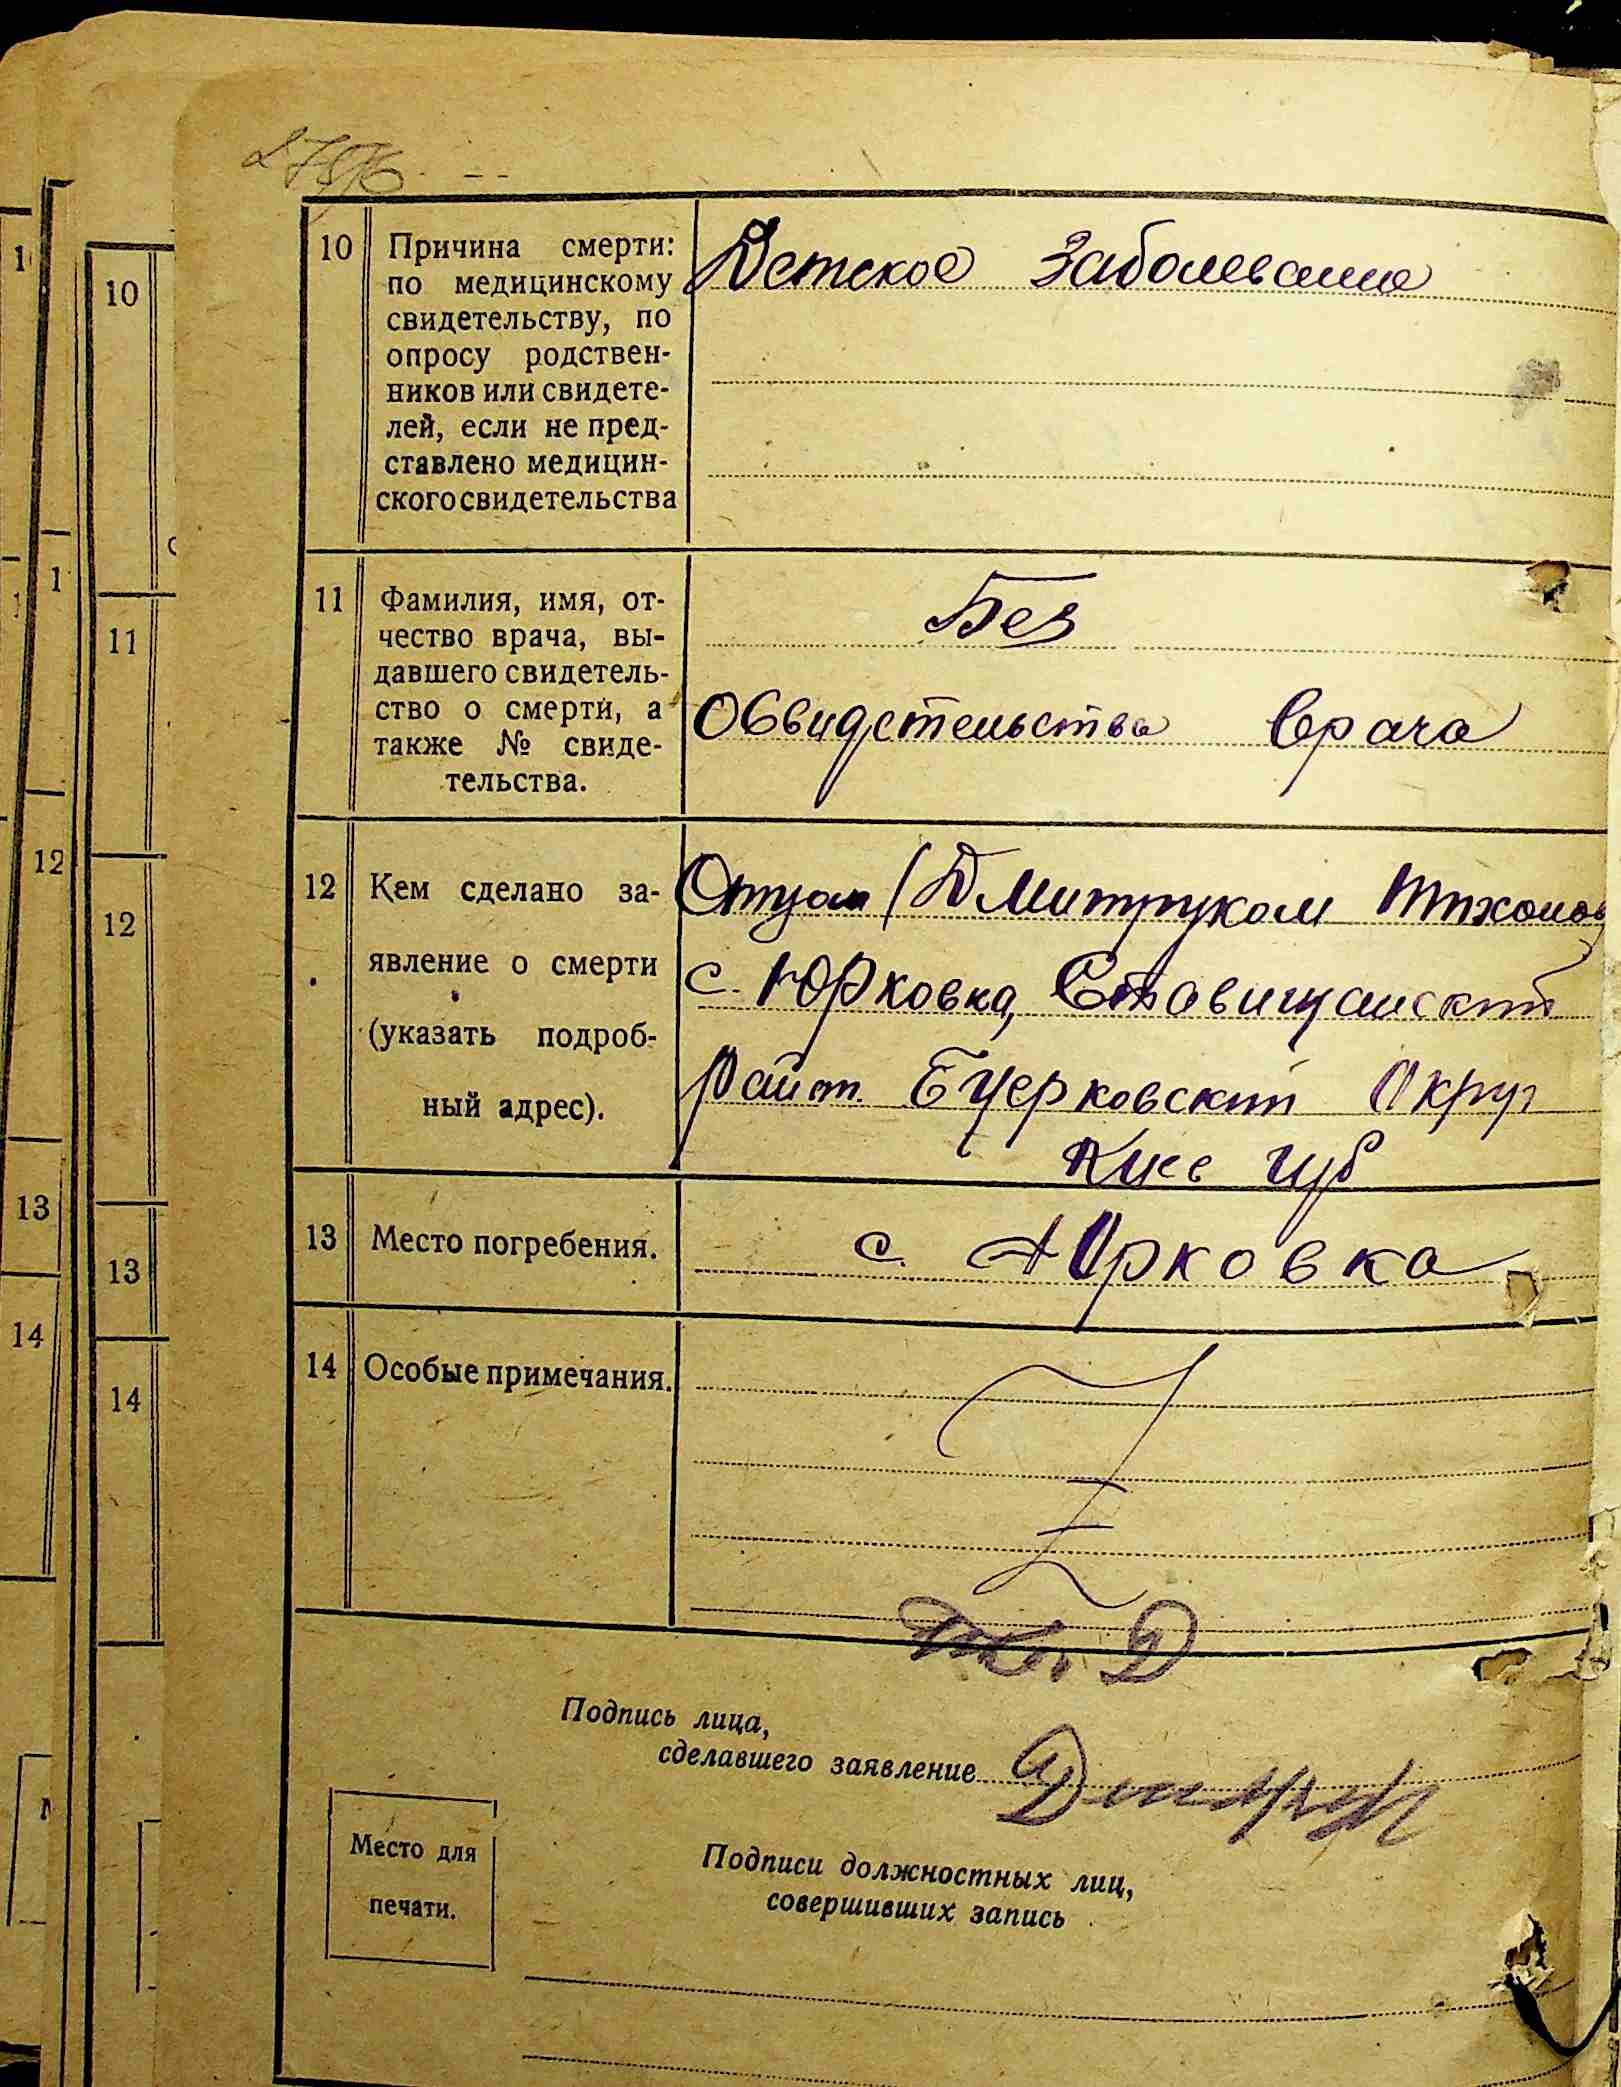 10 Причина смерти:
по медицинскому
свидетельству, по
опросу родствен-
ников или свидете-
лей, если не пред-
ставлено медицин-
ского свидетельства
Детское Заболевание
11 Фамилия, имя, от-
чество врача, вы-
давшего свидетель-
ство о смерти, а
также № свиде-
тельства.
Без
Освидетельства врача
12 Кем сделано за-
явление о смерти
(указать подроб-
ный адрес).
Отцом (Дмитруком Тихонов
с. Юрковка, Ставищанский
Район. Б Церковский Округ
Киев губ
13 Место погребения.
с. Юрковка
14 Особые примечания.
Подпись лица,
сделавшего заявление
Место для
печати.
Подписи должностных лиц,
совершивших запись
10
11
12
13
14
12
13
14